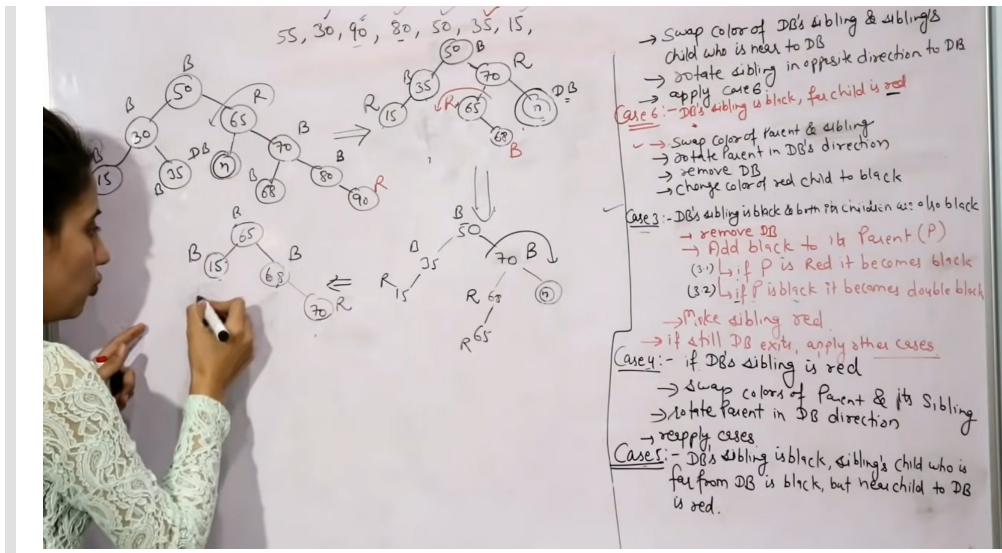 55, 30, 90, 80, 50, 35, 15,
B
50
B
30
R
65
B
15
B
35
DB
n
B
70
B
68
B
80
R
90
50
B
B
35
R
15
70
R
R
65
n
DB
68
B
B
50
B
35
R
15
70 B
R 68
n
R 65
B
65
B
15
B
68
70 R
→ Swap color of DB's sibling & sibling's
child who is near to DB
→ rotate sibling in opposite direction to DB
→ apply case 6
Case 6:- DB's sibling is black, far child is red
→ Swap color of Parent & sibling
→ rotate Parent in DB's direction
→ remove DB
→ change color of red child to black
Case 3:- DB's sibling is black & both its children are also black
→ remove DB
→ Add black to its Parent (P)
(3.1) ↳ if P is Red it becomes black
(3.2) ↳ if P is black it becomes double black
→ Make sibling red
→ if still DB exits, apply other cases
Case 4:- if DB's sibling is red
→ swap colors of Parent & its Sibling
→ rotate Parent in DB direction
→ reapply cases
Case 5:- DB's sibling is black, sibling's child who is
far from DB is black, but near child to DB
is red.